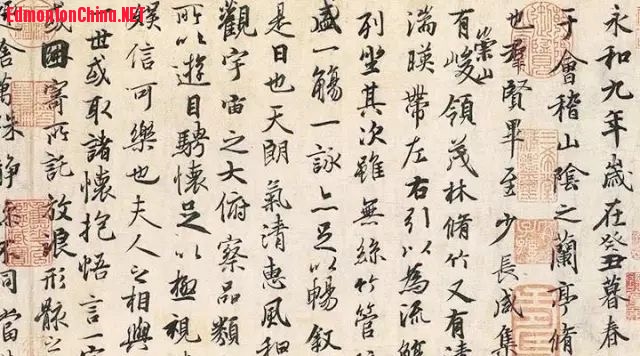 EdmontonChina.NET
永和九年歲在癸丑暮春
于會稽山陰之蘭亭脩
也羣賢畢至少長咸集
有崇山峻領茂林脩竹又有清
湍暎帶左右引以為流觴
列坐其次雖無絲竹管
盛一觴一詠亦足以暢叙
是日也天朗氣清惠風和
觀宇宙之大俯察品類
所以遊目騁懷足以極視
娛信可樂也夫人之相與
世或取諸懷抱悟言一室
或因寄所託放浪形骸之
舍萬殊靜不同當